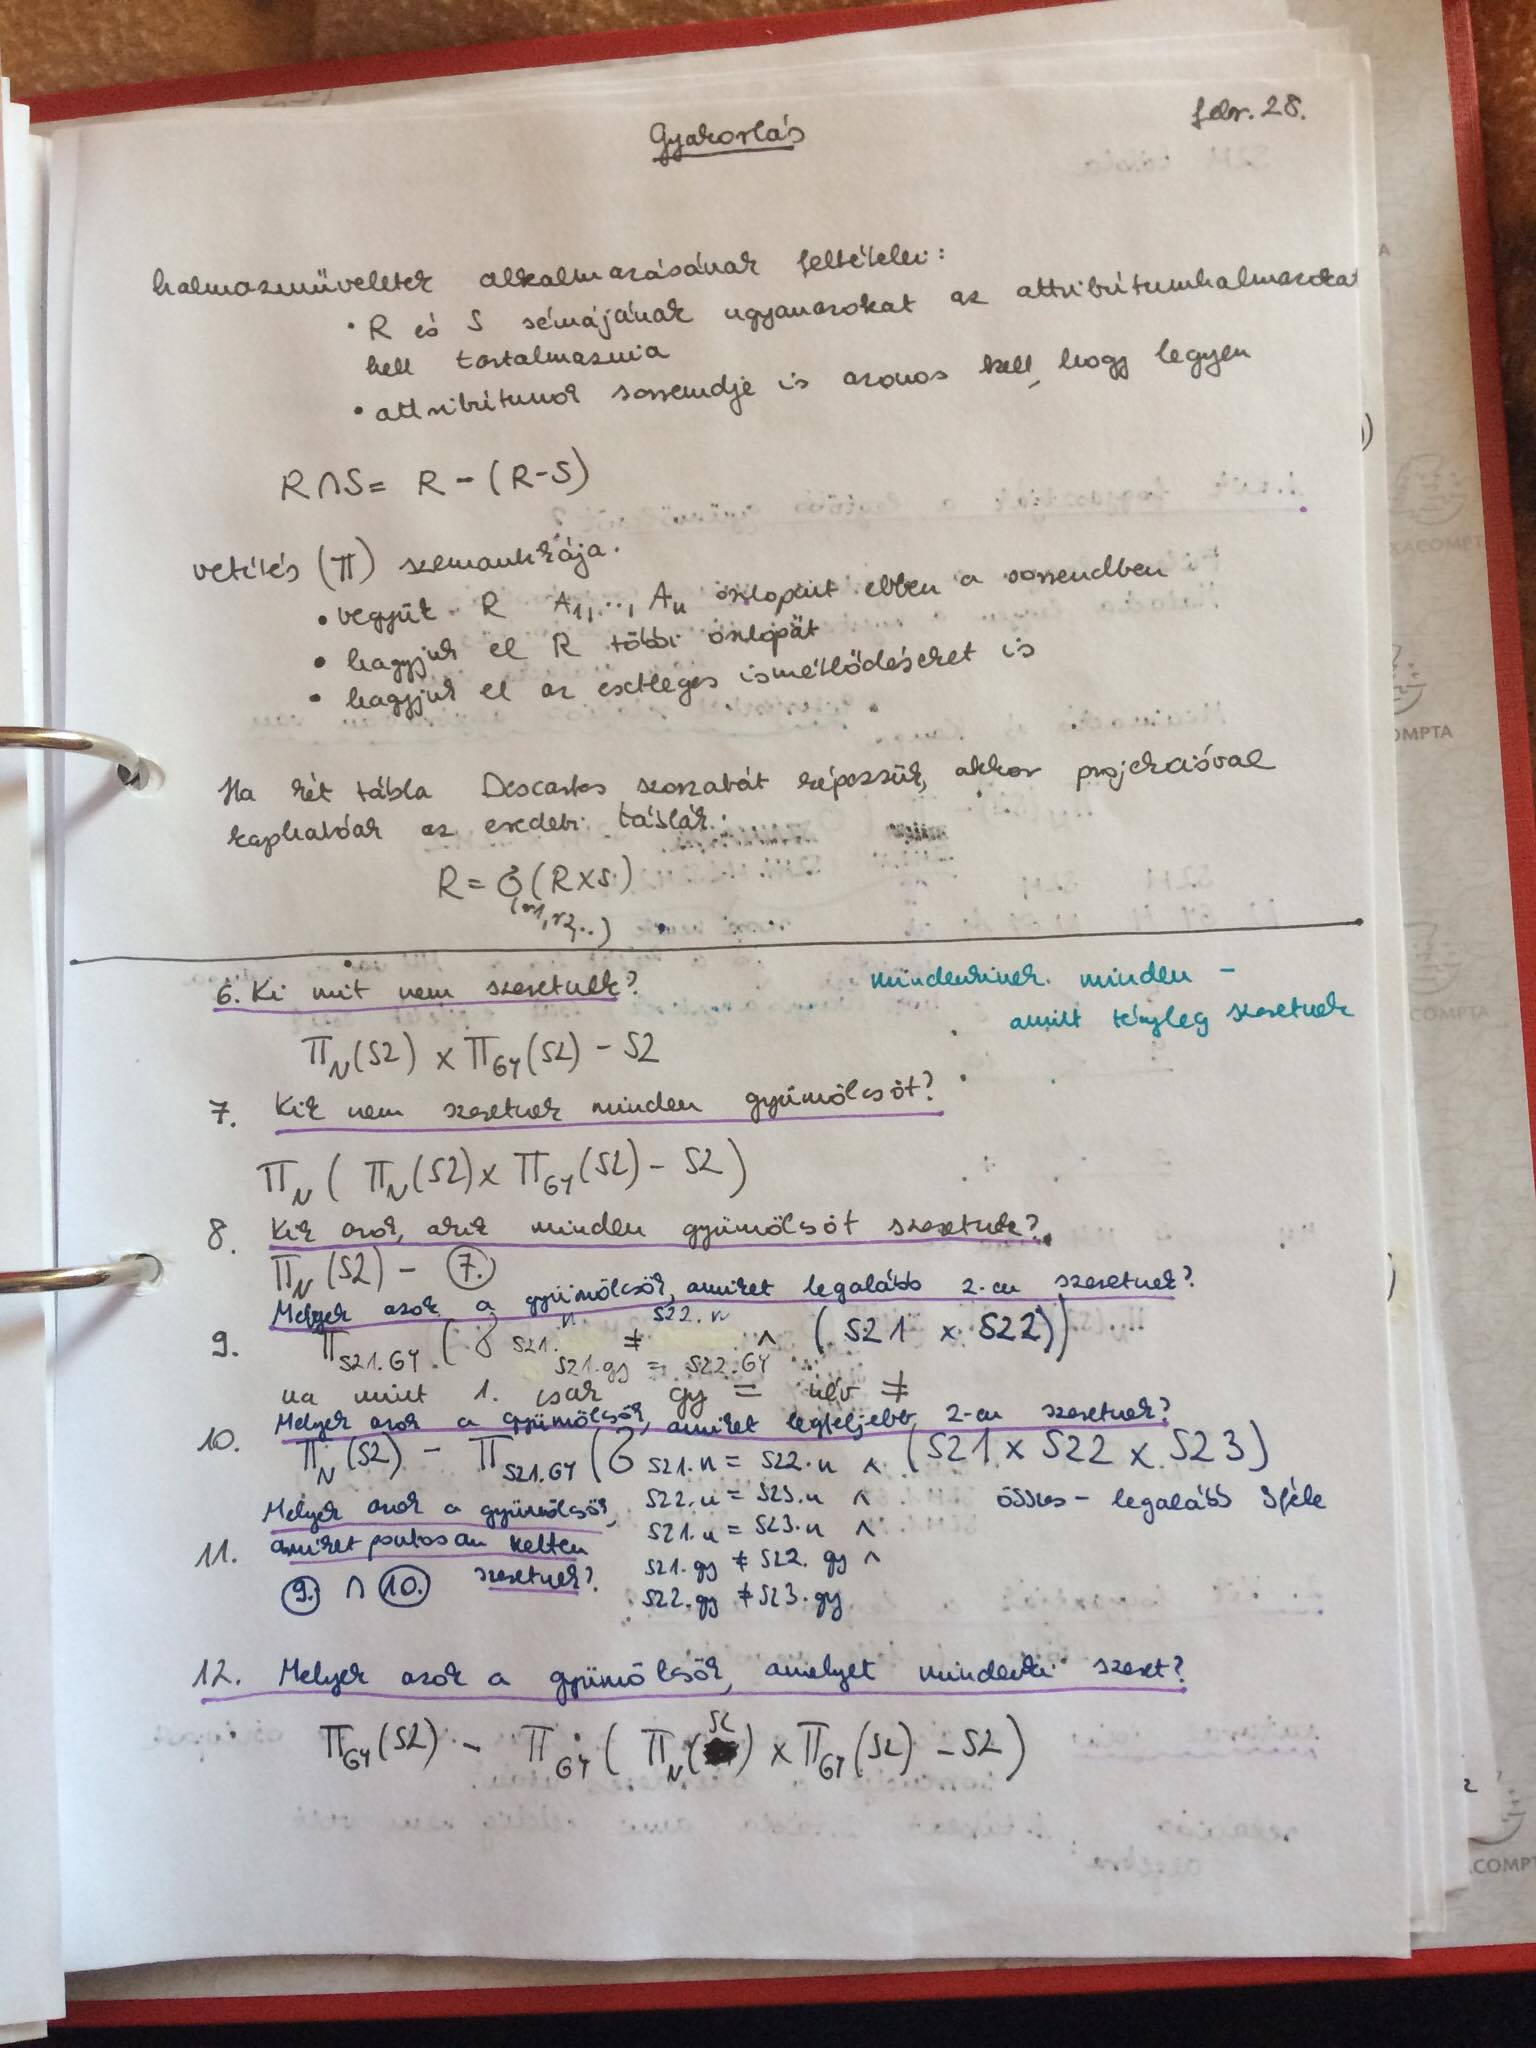 febr. 28.
Gyakorlás
halmazműveletek alkalmazásának feltételei:
• R és S sémájának ugyanazokat az attribútumhalmazokat
kell tartalmaznia
• attribútumok sorrendje is azonos kell, hogy legyen
R∩S = R - (R-S)
vetítés (π) szemantikája.
• vegyük R A1, ..., An oszlopait ebben a sorrendben
• hagyjuk el R többi oszlopát
• hagyjuk el az esetleges ismétlődéseket is
Ha két tábla Descartes szorzatát képezzük, akkor projekcióval
kaphatóak az eredeti táblák.
R = σ (R×S)
(r1, r2, ..)
6. Ki mit nem szeretnek?
mindenkinek minden -
amit tényleg szeretnek
π_N(SZ) × π_GY(SZ) - SZ
7. Kik nem szeretnek minden gyümölcsöt?
π_N ( π_N(SZ) × π_GY(SZ) - SZ )
8. Kik azok, akik minden gyümölcsöt szeretnek?
π_N (SZ) - (7.)
Melyek azok a gyümölcsök, amiket legalább 2-en szeretnek?
9. π_SZ1.GY ( σ SZ1.n ≠ SZ2.n ∧ (SZ1 × SZ2))
SZ1.gy = SZ2.GY
na mint 1. csak gy = név ≠
Melyek azok a gyümölcsök, amiket legfeljebb 2-en szeretnek?
10. π_N(SZ) - π_SZ1.GY ( σ SZ1.n = SZ2.n ∧ (SZ1 × SZ2 × SZ3)
SZ2.n = SZ3.n ∧
összes - legalább 3féle
SZ1.n = SZ3.n ∧
SZ1.gy ≠ SZ2.gy ∧
SZ2.gy ≠ SZ3.gy
Melyek azok a gyümölcsök,
11. amiket pontosan ketten
szeretnek?
(9.) ∩ (10.)
12. Melyek azok a gyümölcsök, amelyet mindenki szeret?
π_GY(SZ) - π_GY ( π_N(SZ) × π_GY(SZ) - SZ )